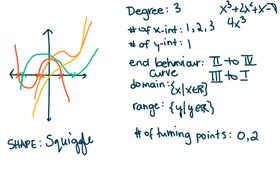 Degree: 3
x³+2x²+x-7
4x³
# of x-int: 1, 2, 3
# of y-int: 1
end behaviour: II to IV
curve III to I
domain: {x|xεR}
range: {y|yεR}
# of turning points: 0,2
SHAPE: Squiggle